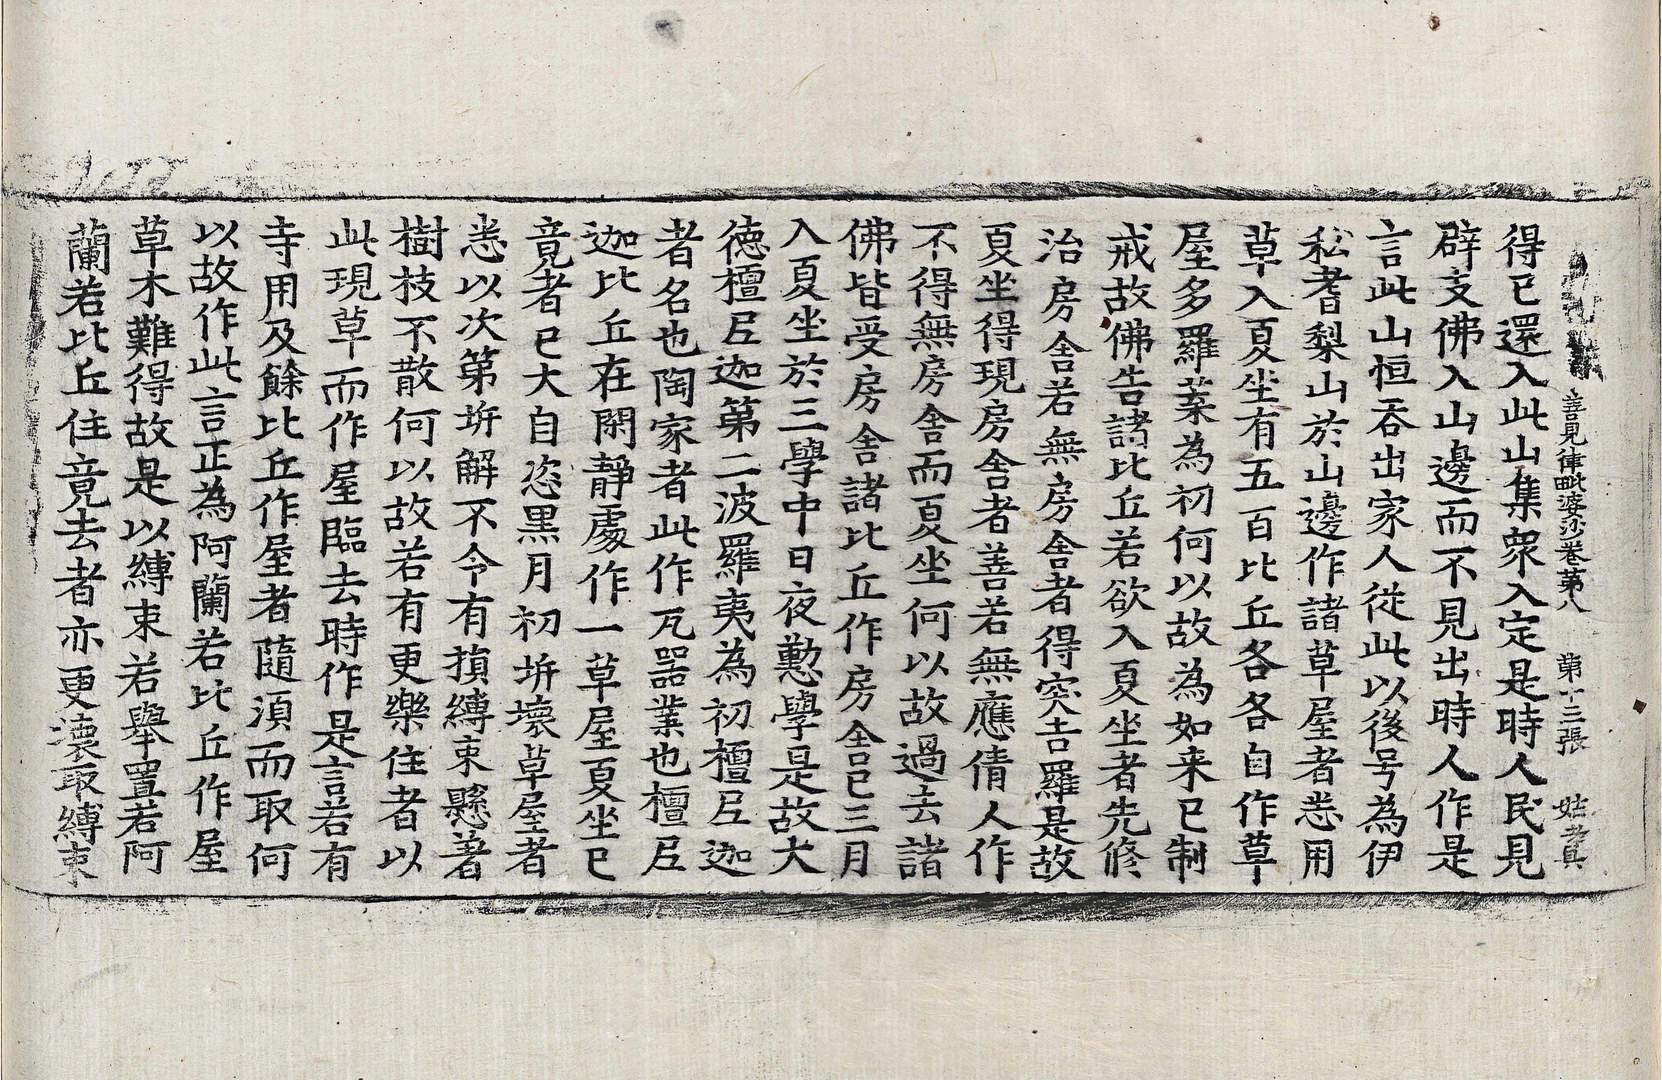 善見律毗婆沙卷第八 第十三張 姑孝真
得已還入此山集衆入定是時人民見
辟支佛入山邊而不見出時人作是
言此山恒吞出家人從此以後号為伊
私耆梨山於山邊作諸草屋者悉用
草入夏坐有五百比丘各各自作草
屋多羅葉為初何以故為如来已制
戒故佛告諸比丘若欲入夏坐者先修
治房舍若無房舍者得突吉羅是故
夏坐得現房舍者善若無應倩人作
不得無房舍而夏坐何以故過去諸
佛皆受房舍諸比丘作房舍已三月
入夏坐於三學中日夜懃學是故大
德檀𡰱迦第二波羅夷為初檀𡰱迦
者名也陶家者此作瓦器業也檀𡰱
迦比丘在閑靜處作一草屋夏坐已
竟者已大自恣黒月初坼壞草屋者
悉以次第坼解不令有損縛束懸著
樹枝不散何以故若有更樂住者以
此現草而作屋臨去時作是言若有
寺用及餘比丘作屋者隨湏而取何
以故作此言正為阿蘭若比丘作屋
草木難得故是以縛束若舉置若阿
蘭若比丘住竟去者亦更壞取縛束